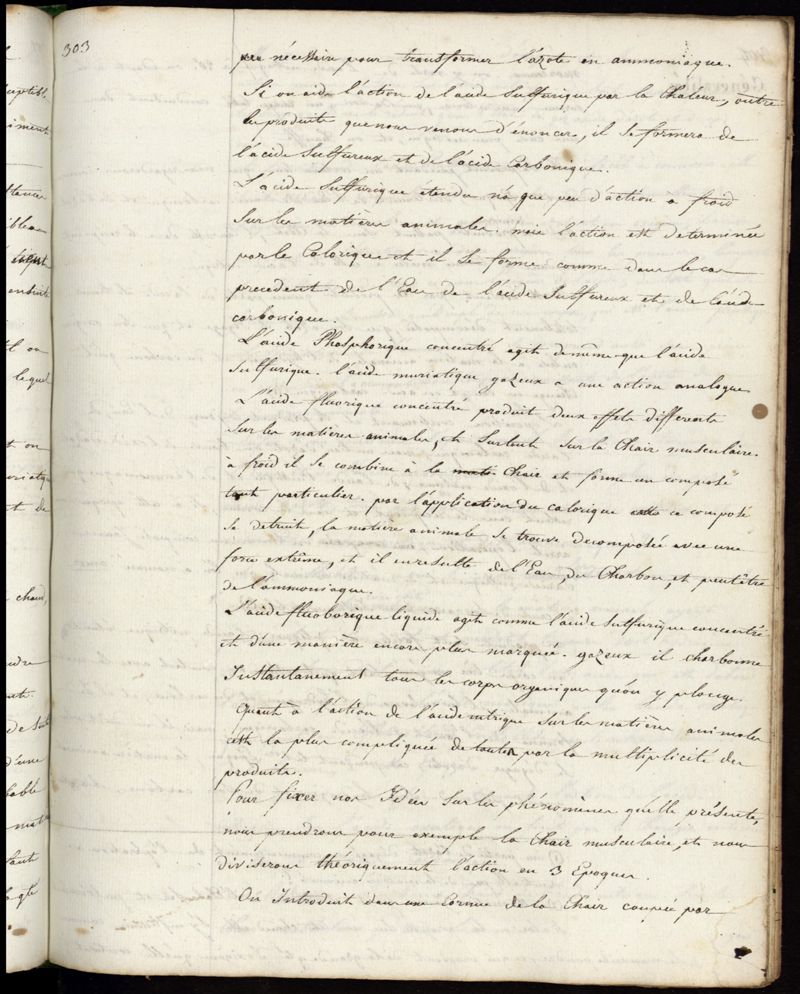 303
peu nécessaire pour transformer l'azote en ammoniaque.
Si on aide l'action de l'acide Sulfurique par la Chaleur, outre
les produits que nous venons d'énoncer, il se formera de
l'acide Sulfureux et de l'acide Carbonique.
L'acide Sulfurique étendu n'a que peu d'action à froid
sur les matières animales. mais l'action est determinée
par le Calorique et il se forme comme dans le cas
precedent de l'Eau de l'acide Sulfureux et de l'acide
carbonique.
L'acide Phosphorique concentré agit de même que l'acide
sulfurique. l'acide muriatique gazeux a une action analogue.
L'acide fluorique concentré produit deux effets differents
sur les matières animales, et surtout sur la Chair musculaire.
à froid il se combine à la Chair et forme un composé
tout particulier. par l'application du calorique ce composé
se detruit, la matière animale se trouve decomposée avec une
force extrême, et il en resulte de l'Eau, du Charbon, et peutêtre
de l'ammoniaque.
L'acide fluoborique liquide agit comme l'acide Sulfurique concentré
et d'une manière encore plus marquée. gazeux il charbonne
Instantanement tous les corps organiques qu'on y plonge.
Quant à l'action de l'acide nitrique sur les matières animales
c'est la plus compliquée de toutes par la multiplicité des
produits.
Pour fixer nos Idées sur les phénomènes qu'elle présente,
nous prendrons pour exemple la Chair musculaire, et nous
diviserons théoriquement l'action en 3 Epoques.
On Introduit dans une Cornue de la Chair coupée par